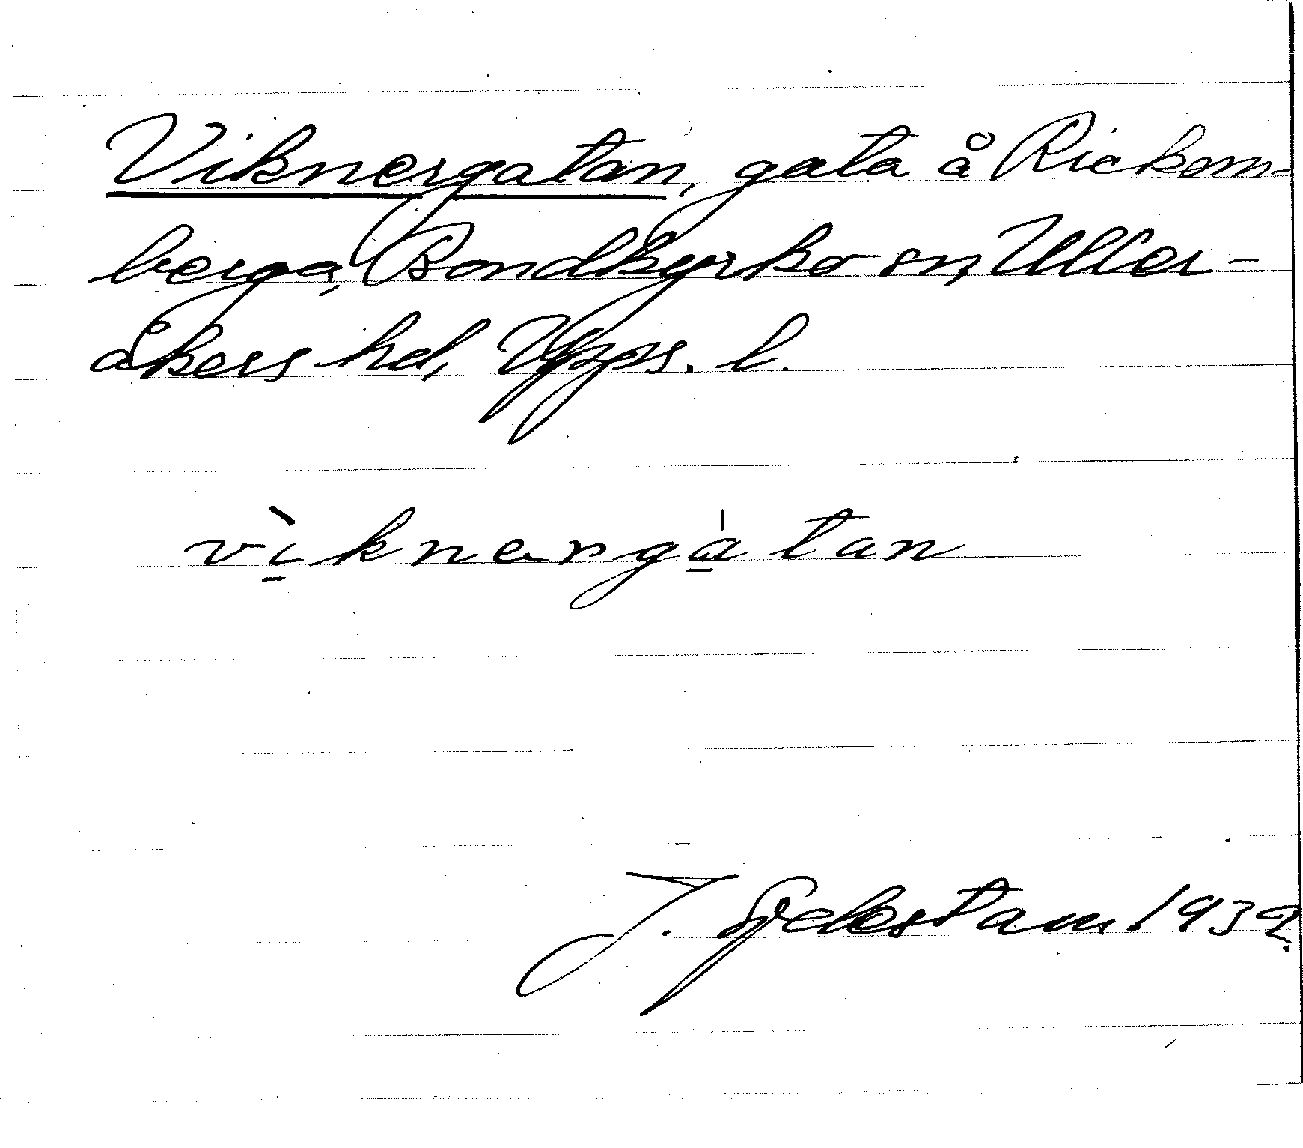 Viknergatan, gata å Rickom-
berga, Bondkyrko sn, Uller-
åkers hd, Upps. l.
vìknergátan
J. 1932.